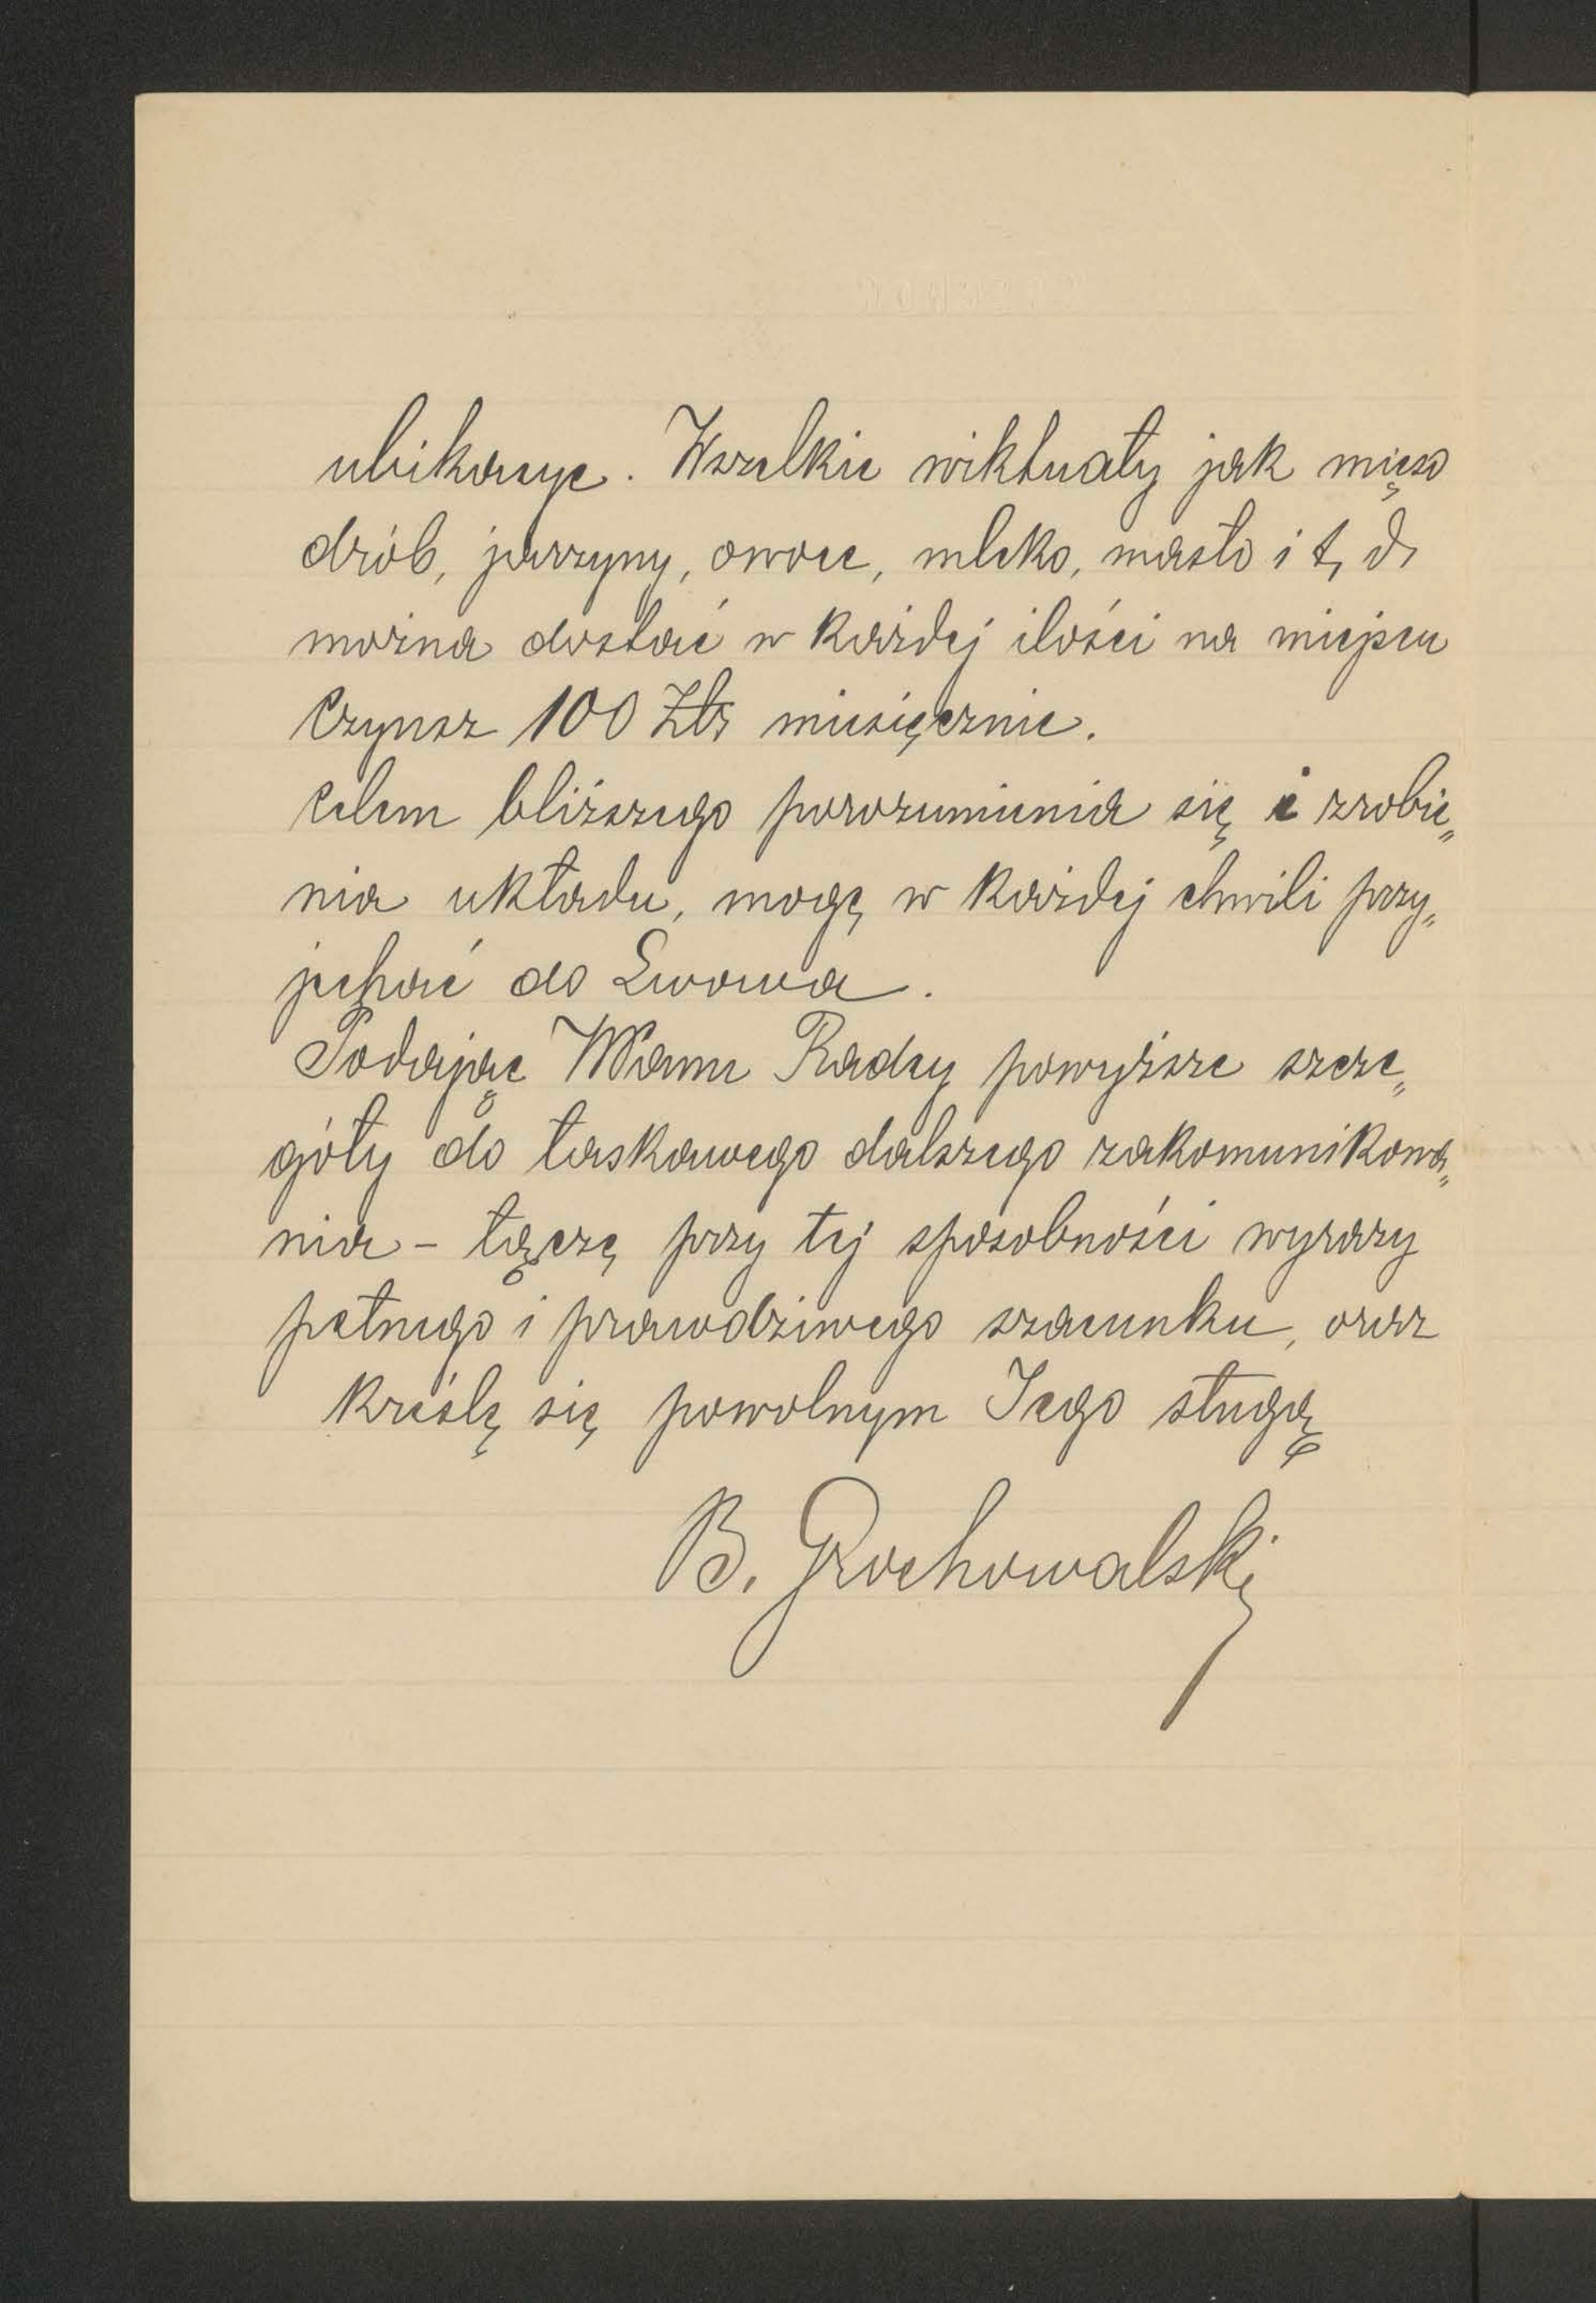 ubikacye. Wszelkie wiktuały jak mięso
drób, jarzyny, owoce, mleko, masło i t, d,
można dostać w każdej ilości na miejscu
Czynsz 100 Złr miesięcznie.
Celem bliższego porozumienia się i zrobie„
nia układu, mogę w każdej chwili przy„
jechać do Lwowa.
Podając WPanu Radcy powyższe szcze„
góły do łaskawego dalszego zakomunikowa„
nia – łączę przy tej sposobności wyrazy
pełnego i prawdziwego szacunku, oraz
kreślę się powolnym Jego sługą
B. Grochowalski